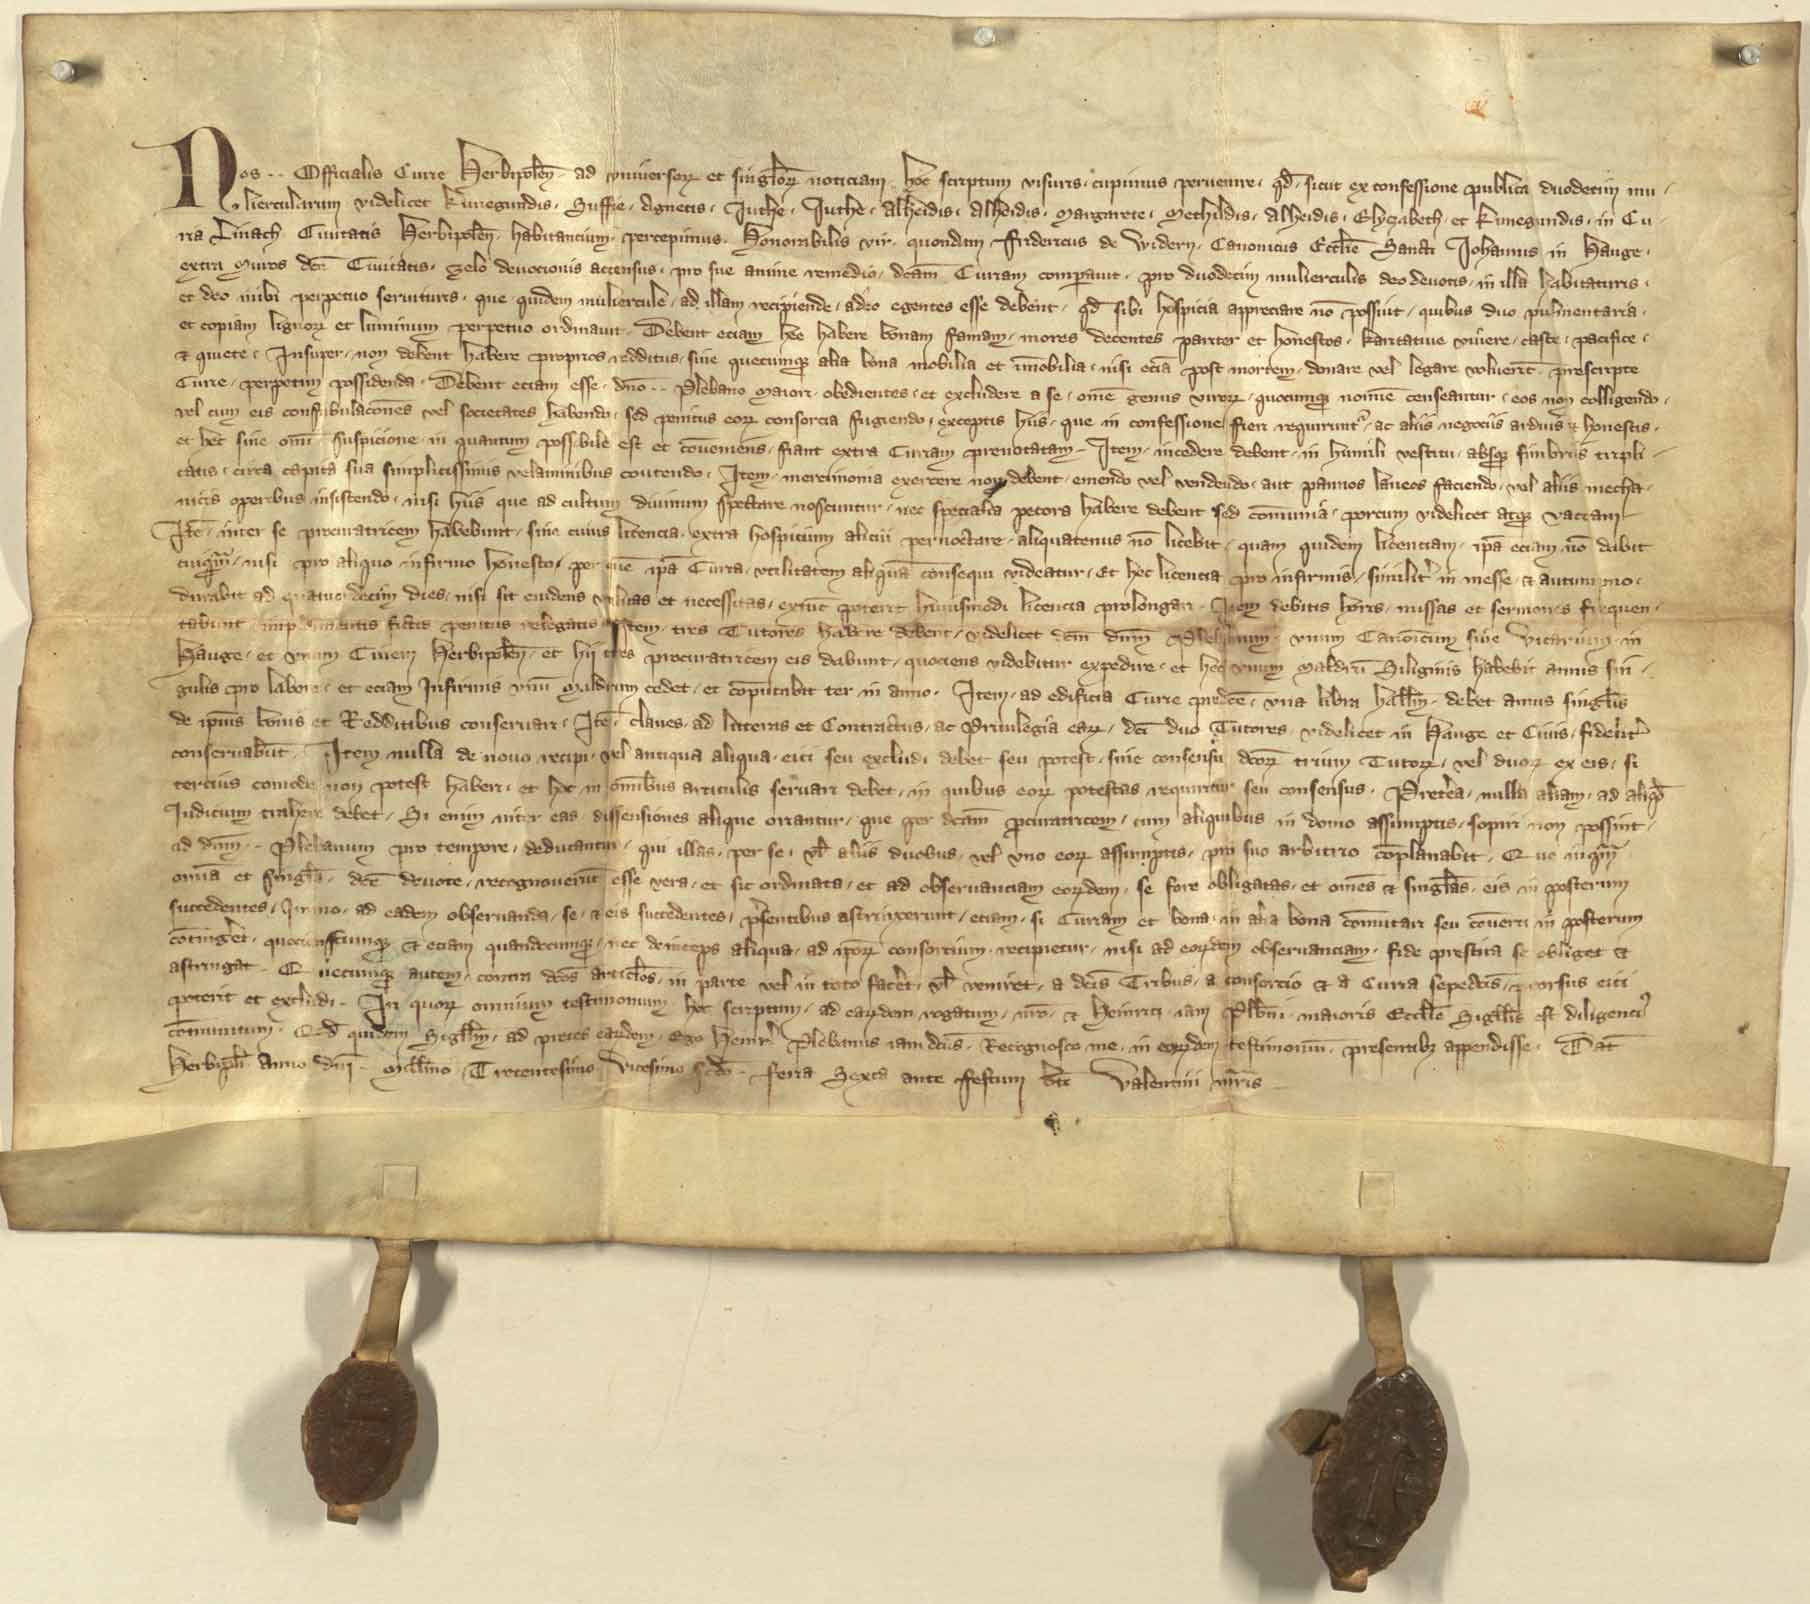 Nos ·· Officialis Curie Herbipoleñ · ad vniuersoꝝ et singłoꝝ noticiam · hoc scriptum visuris · cupimus peruenire · qđ · sicut ex confessione publica duodecim mu ·
liercularum videlicet Kunegundis · Suffie · Agnetis · Juthe · Juthe · Alheidis · Alheidis · Margarete · Methildis · Alheidis · Elyzabeth · et Kunegundis · in Cu ·
ria Linach Ciuitatis Herbipoleñ · habitancium · percepimus · Honorabilis vir · quondam Fridericus de Widern · Canonicus Eccłie Sancti Johannis in Hauge ·
extra muros dc̄e Ciuitatis · zelo deuocionis accensus · pro sue anime remedio · dc̄am Curiam comparauit · pro duodecim mulierculis deo deuotis · in illa habitaturis ·
et deo inibi perpetuo seruituris · que quidem muliercule · ad illam recipiende · adeo egentes esse debent · qđ sibi hospicia appreciare nō possint · quibus duo pulmentaria ·
et copiam lignoꝝ et luminum perpetuo ordinauit · Debent eciam hee habere bonam famam · mores decentes pariter et honestos · karitatiue viuere · caste · pacifice ·
et quiete · Insuper · non debent habere proprios redditus · siue quecumqꝫ alia bona mobilia et īmobilia · nisi eciā post mortem · donare vel legare voluerīt · prescripte
Curie · perpetuo possidenda · Debent eciam esse · dño ·· Plebano maiori · obedientes · et excludere a se · om̄e genus viroꝝ · quocumqꝫ nomine censeantur · eos non colligendo ·
vel cum eis confabulacōnes vel societates habendo · sed penitus eoꝝ consorcia fugiendo · exceptis hiis · que in confessione fieri requirunt᷑ · ac aliis negociis arduis et honestis ·
et hec sine om̄i suspicione · in quantum possibile est et cōueniens · fiant extra Curiam prenotatam · Item · incedere debent · in humili vestitu · absqꝫ fimbriis tripli ·
catis · circa capita sua simplicissimis velaminibus contendo · Item · mercimonia exercere non debent · emendo vel vendendo · aut pannos laneos faciendo · vel aliis mecha ·
nicis operibus insistendo · nisi hiis que ad cultum diuinum spectare noscuntur · nec specialia pecora habere debent sed cōmunia · porcum videlicet atqꝫ vaccam
Itē · inter se procuratricem habebunt · sine cuius licencia · extra hospicium alicui pernoctare · aliquatenus nō licebit · quam quidem licenciam · ip̄a eciam nō dabit
cuiqᷓm · nisi pro aliquo infirmo honesto · per quē ip̄a Curia · vtilitatem aliquā consequi videatur · Et hec licencia pro infirmis · similiť in messe · et autumpno ·
durabit ad quatuordecim dies · nisi sit euidens vtilitas et necessitas · extūc poterit huiusmodi licencia prolongari · Item debitis horis · missas et sermones frequen ·
tabunt · fictis penitus relegatis Item · tres Tutores habere debent · videlicet dc̄m dn̄m Plebanum · vnum Canonicum siue Vicarium · in
Hauge · et vnum Ciuem Herbipoleñ · et hij tres procuratricem eis dabunt · quociens videbitur expedire · et hec vnum maldrū Siliginis habebit annis sin ·
gulis pro labore · et eciam Infirmis vnū maldrum cedet · et cōputabit ter in anno · Item · ad edificia Curie predc̄e · vna libra hałłm · debet annis singłis
de ipius bonis et Redditibus conseruari · Itē · claues · ad litteras et Contractus · ac Priuilegia eaꝝ · dc̄i duo Tutores · videlicet in Hauge et Ciuis · fideliť
conseruabūt · Item nulla de nouo recipi · vel antiqua aliqua · eici seu excludi debet seu potest · sine consensu dc̄oꝝ trium Tutoꝝ · vel duoꝝ ex eis · si
tercius comode non potest haberi · et hoc in om̄ibus articulis seruari debet · in quibus eoꝝ potestas requiritur seu consensus · Preťea · nulla aliam · ad aliqđ
Judicium trahere debet · Si enim inter eas dissensiones alique oriantur · que per dc̄am ꝓcuratricem · cum aliquibus in domo assumptis · sopiri non possint ·
ad dn̄m ·· Plebanum pro tempore · deducantur · qui illas · per se · vł aliis duobus · vel vno eoꝝ assumptis · pro suo arbitrio cōplanabit · Que inqᷓm
omīa et singła · dc̄e deuote · recognouerūt esse vera · et sic ordinata · et ad obseruanciam eoꝝdem · se fore obligatas · et om̄es et singłas · eis in posterum
succedentes · Immo · ad eadem obseruanda · se · et eis succedentes · p̄sentibus astrinxerunt · eciam · si Curiam et bona · in alia bona cōmutari seu cōuerti in posterum
cōtingeret · quocienscumqꝫ et eciam quandocumqꝫ · nec deinceps aliqua · ad ip̄oꝝ consorcium · recipietur · nisi ad eoꝝdem obseruanciam · fide prestita se obliget et
astringat · Quecumqꝫ autem · contra dc̄os artic̄los · in parte vel in toto faceret · vł veniret · a dc̄is Tribus · a consorcio et a Curia sepedc̄is · prorsus eici
poterit et excludi · In quoꝝ omnium testimonium · hoc scriptum · ad eaꝝdem rogatum · nr̄o · et Heinrici · iam Płbni · maioris Eccłie Sigiłłis est diligenť
cōmunitum · Qđ quidem Sigiłłm · ad preces eaꝝdem · Ego Heinř Plebanus iam dc̄us · Recognosco me · in eoꝝdem testimoniū · presentibꝫ appendisse · Daṫ
Herbipoł Anno dn̄i · Miłłmo Trecentesimo Vicesimo sc̄do · feria Sexta ante festum bt̄i Valentini m̄ris